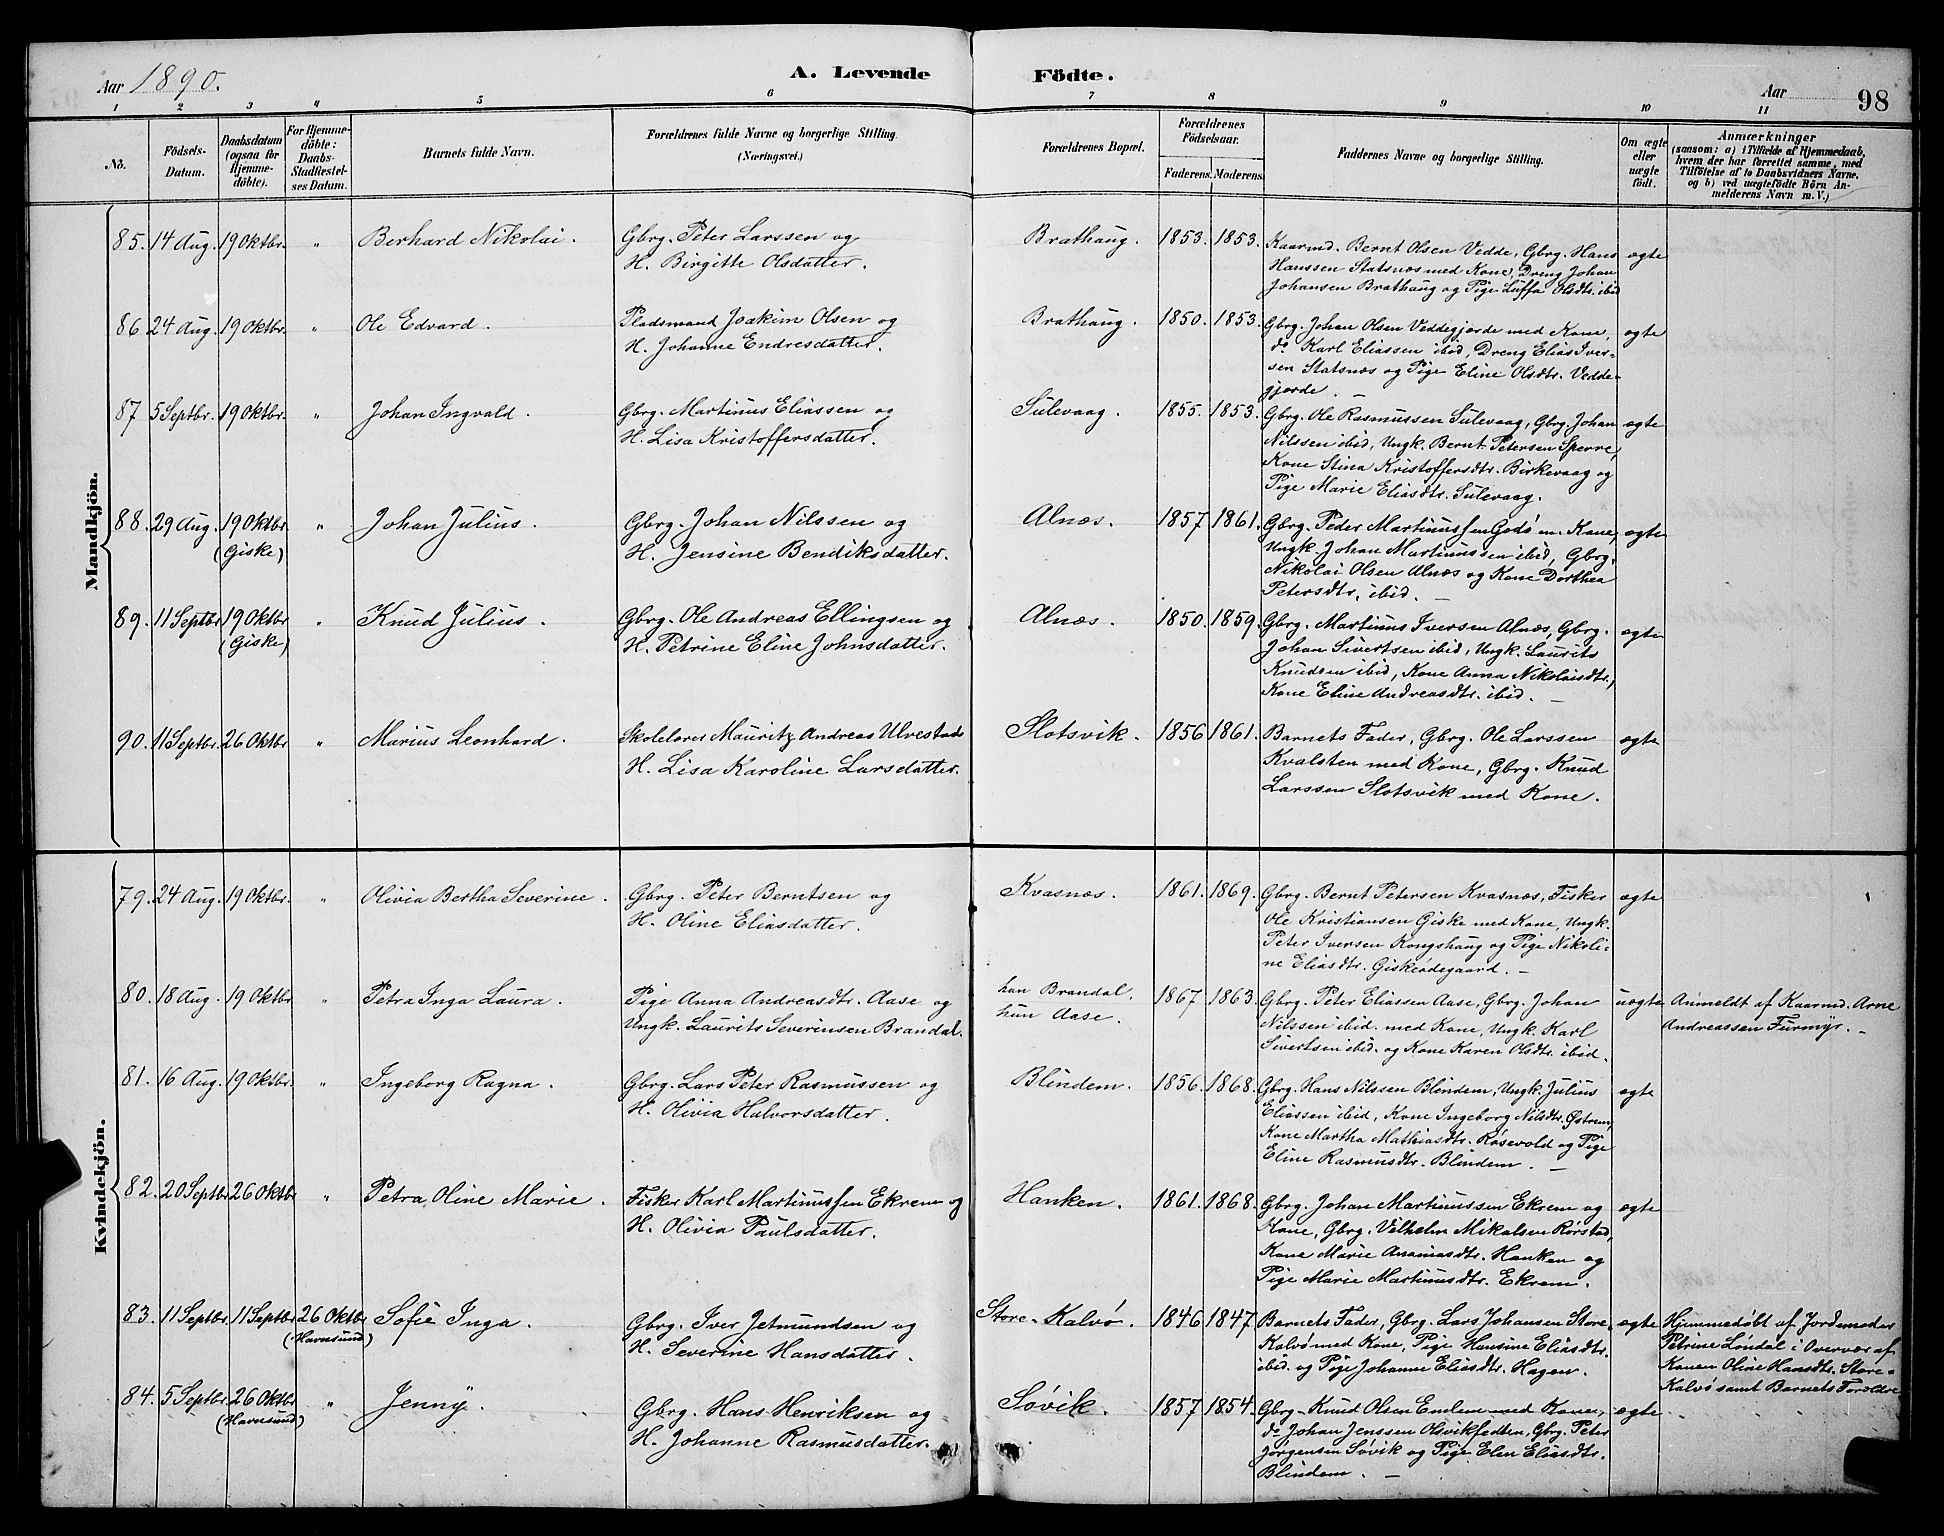 Aar 1890. A. Levende Födte. Aar 98
1 2 3 4 5 6 7 8 9 10 11
No. Födsels-Datum. Daabsdatum (ogsaa for Hjemme-döbte). For Hjemme-döbte: Daabs-Stadfæstel-ses Datum. Barnets fulde Navn. Forældrenes fulde Navne og borgerlige Stilling. (Næringsvei.) Forældrenes Bopæl. Forældrenes Födselsaar. Faderens. Moderens. Faddernes Navne og borgerlige Stilling. Om ægte eller uægte födt. Anmærkninger (saasom: a) i Tilfælde af Hjemmedaab, hvem der har forrettet samme, med Tilföielse af to Daabsvidners Navne. og b) ved uægtefödte Börn An-melderens Navn m. V.)
Mandkjön.
85. 14 Aug. 19 Oktbr. " Berhard Nikolai. Gbrg. Peter Larssen og
H. Birgitte Olsdatter. Brathaug. 1853. 1853. Kaarmd. Bernt Olsen Vedde, Gbrg. Hans
Hanssen Statsnæs med Kone, Dreng Johan
Johansen Brathaug og Pige Luffa Olsdtr. ibid ægte
86. 24 Aug. 19 Oktbr. " Ole Edvard. Pladsmand Joakim Olsen og
H. Johanne Endresdatter. Brathaug. 1850. 1853. Gbrg. Johan Olsen Veddegjerde med Kone,
do Karl Eliassen ibid, Dreng Elias Iver-
sen Statsnæs og Pige Eline Olsdtr. Vedde-
gjerde. – ægte
87. 5 Septbr. 19 Oktbr. " Johan Ingvald. Gbrg. Martinus Eliassen og
H. Lisa Kristoffersdatter. Sulevaag. 1855. 1853. Gbrg. Ole Rasmussen Sulevaag, Gbrg. Johan
Nilssen ibid, Ungk. Bernt Petersen Sperre,
Kone Stina Kristoffersdtr. Birkevaag og
Pige Marie Eliasdtr. Sulevaag. ægte
88. 29 Aug. 19 Oktbr (Giske) " Johan Julius. Gbrg. Johan Nilssen og
H. Jensine Bendiksdatter. Alnæs. 1857 1861. Gbrg. Peder Martinussen Godø m. Kone,
Ungk. Johan Martinussen ibid, Gbrg.
Nikolai Olsen Alnæs og Kone Dorthea
Petersdtr. ibid. – ægte
89. 11 Septbr 19 Oktbr (Giske) " Knud Julius. Gbrg. Ole Andreas Ellingsen og
H. Petrine Eline Johnsdatter. Alnæs. 1850. 1859. Gbrg. Martinus Iversen Alnæs, Gbrg.
Johan Sivertsen ibid, Ungk. Laurits
Knudsen ibid, Kone Anna Nikolaisdtr.,
Kone Eline Andreasdtr. ibid. – ægte
90. 11 Septbr. 26 Oktbr " Marius Leonhard. Skolelærer Mauritz Andreas Ulvestad
H. Lisa Karoline Larsdatter. Slotsvik. 1856 1861. Barnets Fader, Gbrg. Ole Larssen
Kvalsten med Kone, Gbrg. Knud
Larssen Slotsvik med Kone. ægte
Kvindekjön.
79. 24 Aug. 19 Oktbr. " Olivia Bertha Severine. Gbrg. Peter Berntsen og
H. Oline Eliasdatter. Kvasnæs. 1861. 1869. Gbrg. Bernt Petersen Kvasnæs, Fisker
Ole Kristiansen Giske med Kone, Ungk.
Peter Iversen Kongshaug og Pige Nikoli-
ne Eliasdtr. Giskeødegaard. – ægte
80. 18 Aug. 19 Oktbr " Petra Inga Laura. Pige Anna Andreasdtr. Aase og
Ungk. Laurits Severinsen Brandal. han Brandal.
hun Aase. 1867 1863. Gbrg. Peter Eliassen Aase, Gbrg. Johan
Nilssen ibid. med Kone, Ungk. Karl
Sivertsen ibid. og Kone Karen Olsdtr. ibid. uægte Anmeldt af Kaarmd. Arne
Andreassen Furmyr. –
81. 16 Aug. 19 Oktbr. " Ingeborg Ragna. Gbrg. Lars Peter Rasmussen og
H. Olivia Halvorsdatter. Blindem. 1856. 1868. Gbrg. Hans Nilssen Blindem, Ungk. Julius
Eliassen ibid, Kone Ingeborg Nilsdtr. Østrem,
Kone Martha Mathiasdtr. Røsevold og Pige
Eline Rasmusdtr. Blindem. – ægte
82. 20 Septbr 26 Oktbr " Petra Oline Marie. Fisker Karl Martinussen Ekrem og
H. Olivia Paulsdatter. Hanken. 1861. 1868. Gbrg. Johan Martinussen Ekrem og
Kone, Gbrg. Vilhelm Mikalsen Rørstad,
Kone Marie Ananiasdtr. Hanken og
Pige Marie Martinusdtr. Ekrem. ægte
83. 11 Septbr. 11 Septbr 26 Oktbr (Havnsund) Sofie Inga. Gbrg. Iver Jetmundsen og
H. Severine Hansdatter. Store-Kalvø. 1846 1847 Barnets Fader, Gbrg. Lars Johansen Store-
Kalvø med Kone, Pige Hansine Eliasdtr.
ibid. og Pige Johanne Eliasdtr. Hagen. ægte Hjemmedøbt af Jordemoder
Petrine Løndal i Overvær af
Konen Oline Hansdtr. Store-
Kalvø samt Barnets Forældre
84. 5 Septbr. 26 Oktbr (Havnsund) " Jenny. Gbrg. Hans Henriksen og
H. Johanne Rasmusdatter. Søvik. 1857 1854. Gbrg. Knud Olsen Emlem med Kone,
do Johan Jenssen Olsvikfedten, Gbrg. Peter
Jørgensen Søvik og Pige Elen Eliasdtr.
Blindem. – ægte